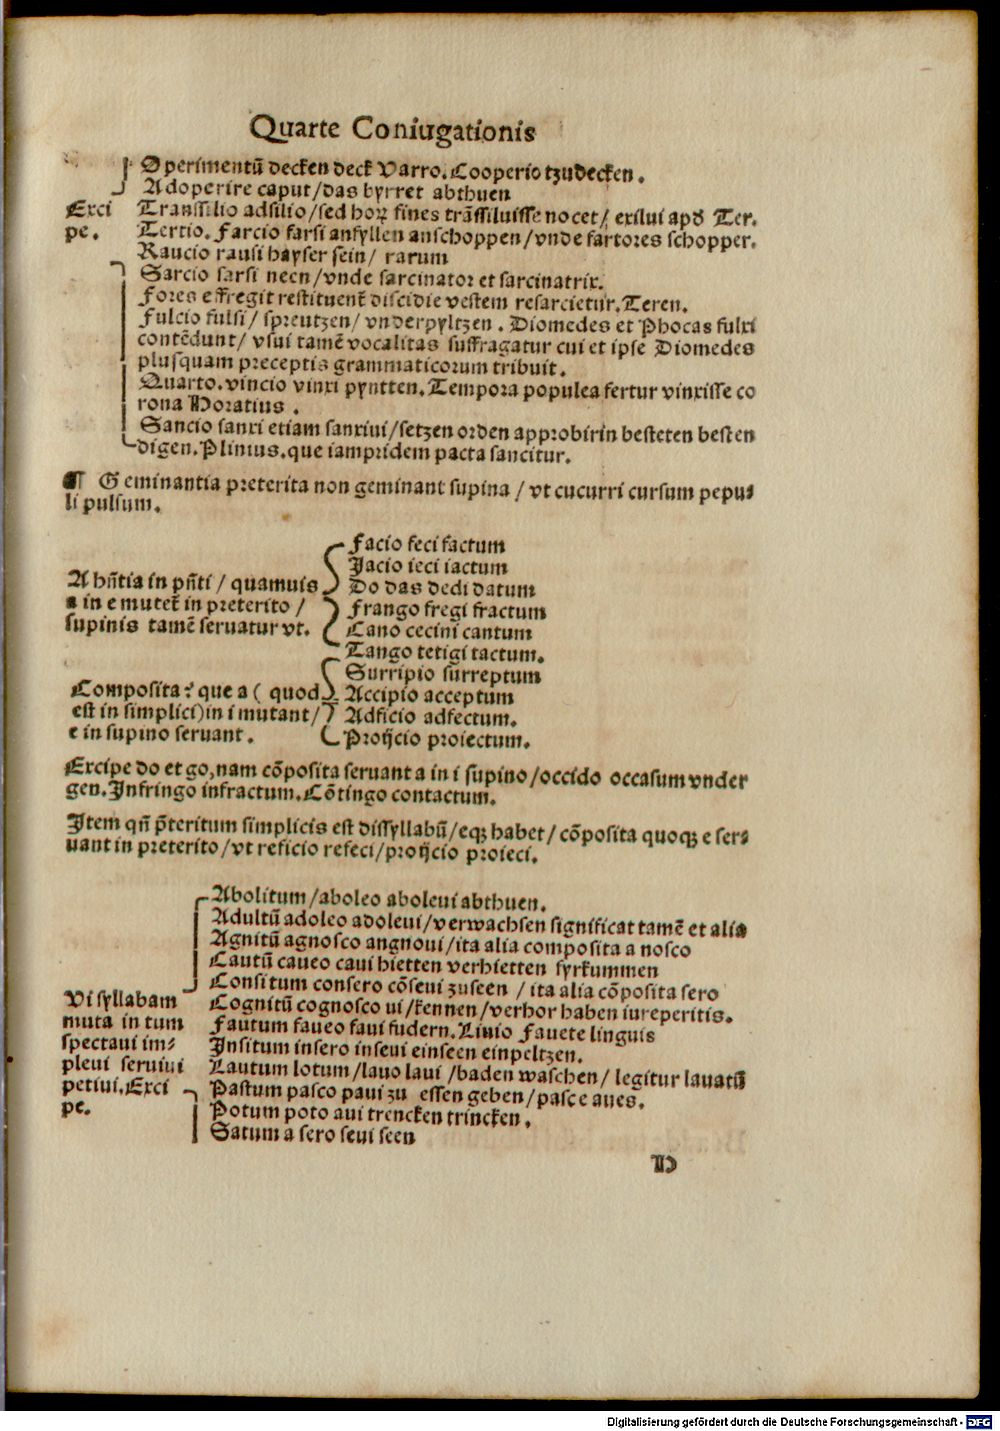 Quarte Coniugationis
Operimentū decken deck Varro. Cooperio tzudecken.
Adoperire caput/das byrret abthuen
Exci
pe.
Transsilio adsilio/sed horꝝ fines trāssiluisse nocet/ exilui apd Ter.
Tertio. Farcio farsi anfyllen anschoppen/vnde fartores schopper.
Raucio rausi hayser sein/ rarum
Sarcio sarsi neen/vnde sarcinator et sarcinatrix.
Fores effregit restituent discidie vestem resarcietur. Teren.
Fulcio fulsi/ spreutzen/ vnderpyltzen. Diomedes et Phocas fulxi
contēdunt/ vsui tamē vocalitas suffragatur cui et ipse Diomedes
plusquam preceptis grammaticorum tribuit.
Quarto. vincio vinxi pyntten. Tempora populea fertur vinxisse co
rona Horatius.
Sancio sanxi etiam sanxiui/setzen orden approbirin besteten besten
digen. Plinius. que iampridem pacta sancitur.
¶ Geminantia preterita non geminant supina/ vt cucurri cursum pepu⸗
li pulsum.
A hn̄tia in pn̄ti/ quamuis
a in e mutet in preterito/
supinis tamē seruatur vt.
Facio feci factum
Jacio ieci iactum
Do das dedi datum
Frango fregi fractum
Cano cecini cantum
Tango tetigi tactum.
Composita: que a ( quod
est in simplici) in i mutant/
e in supino seruant.
Surripio surreptum
Accipio acceptum
Adficio adfectum.
Proijcio proiectum.
Excipe do et go, nam cōposita seruant a in i supino/occido occasum vnder
gen. Infringo infractum. Cōtingo contactum.
Item qn̄ p̄teritum simplicis est dissyllabū/eqꝫ habet/ cōposita quoqꝫ e ser⸗
uant in preterito/ vt reficio refeci/proijcio proieci.
Vi syllabam
muta in tum
spectaui im⸗
pleui seruiui
petiui. Exci
pe.
Abolitum/aboleo aboleui abthuen.
Adultū adoleo adoleui/verwachsen significat tamē et alia
Agnitū agnosco angnoui/ita alia composita a nosco
Cautū caueo caui hietten verhietten fyrkummen
Consitum consero cōseui zuseen / ita alia cōposita sero
Cognitū cognosco ui/kennen/verhor haben iureperitis.
Fautum faueo faui fudern. Liuio Fauete linguis
Insitum insero inseui einseen einpeltzen.
Lautum lotum/lauo laui /baden waschen/ legitur lauatū
Pastum pasco paui zu essen geben/pasce aues.
Potum poto aui trencken trincken.
Satum a sero seui seen
D
Digitalisierung gefördert durch die Deutsche Forschungsgemeinschaft - DFG